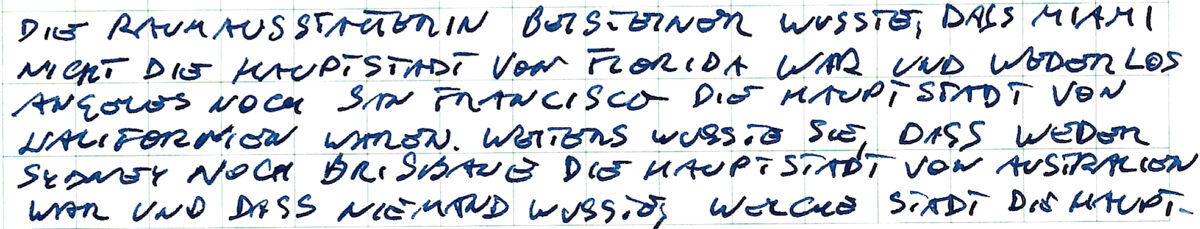 DIE RAUMAUSSTATTERIN BEISTEINER WUSSTE, DASS MIAMI
NICHT DIE HAUPTSTADT VON FLORIDA WAR UND WEDER LOS
ANGELES NOCH SAN FRANCISCO DIE HAUPTSTADT VON
KALIFORNIEN WAREN. WEITERS WUSSTE SIE, DASS WEDER
SYDNEY NOCH BRISBANE DIE HAUPTSTADT VON AUSTRALIEN
WAR UND DASS NIEMAND WUSSTE, WELCHE STADT DIE HAUPT-